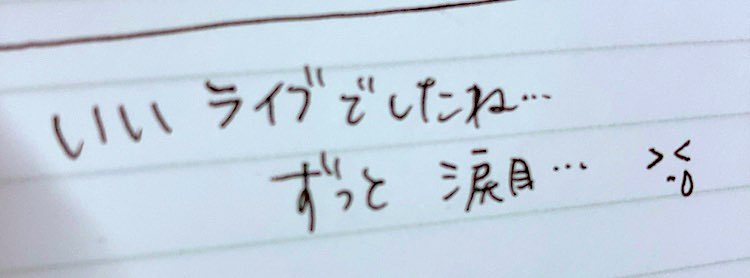 いいライブでしたね…
ずっと 涙目… ><